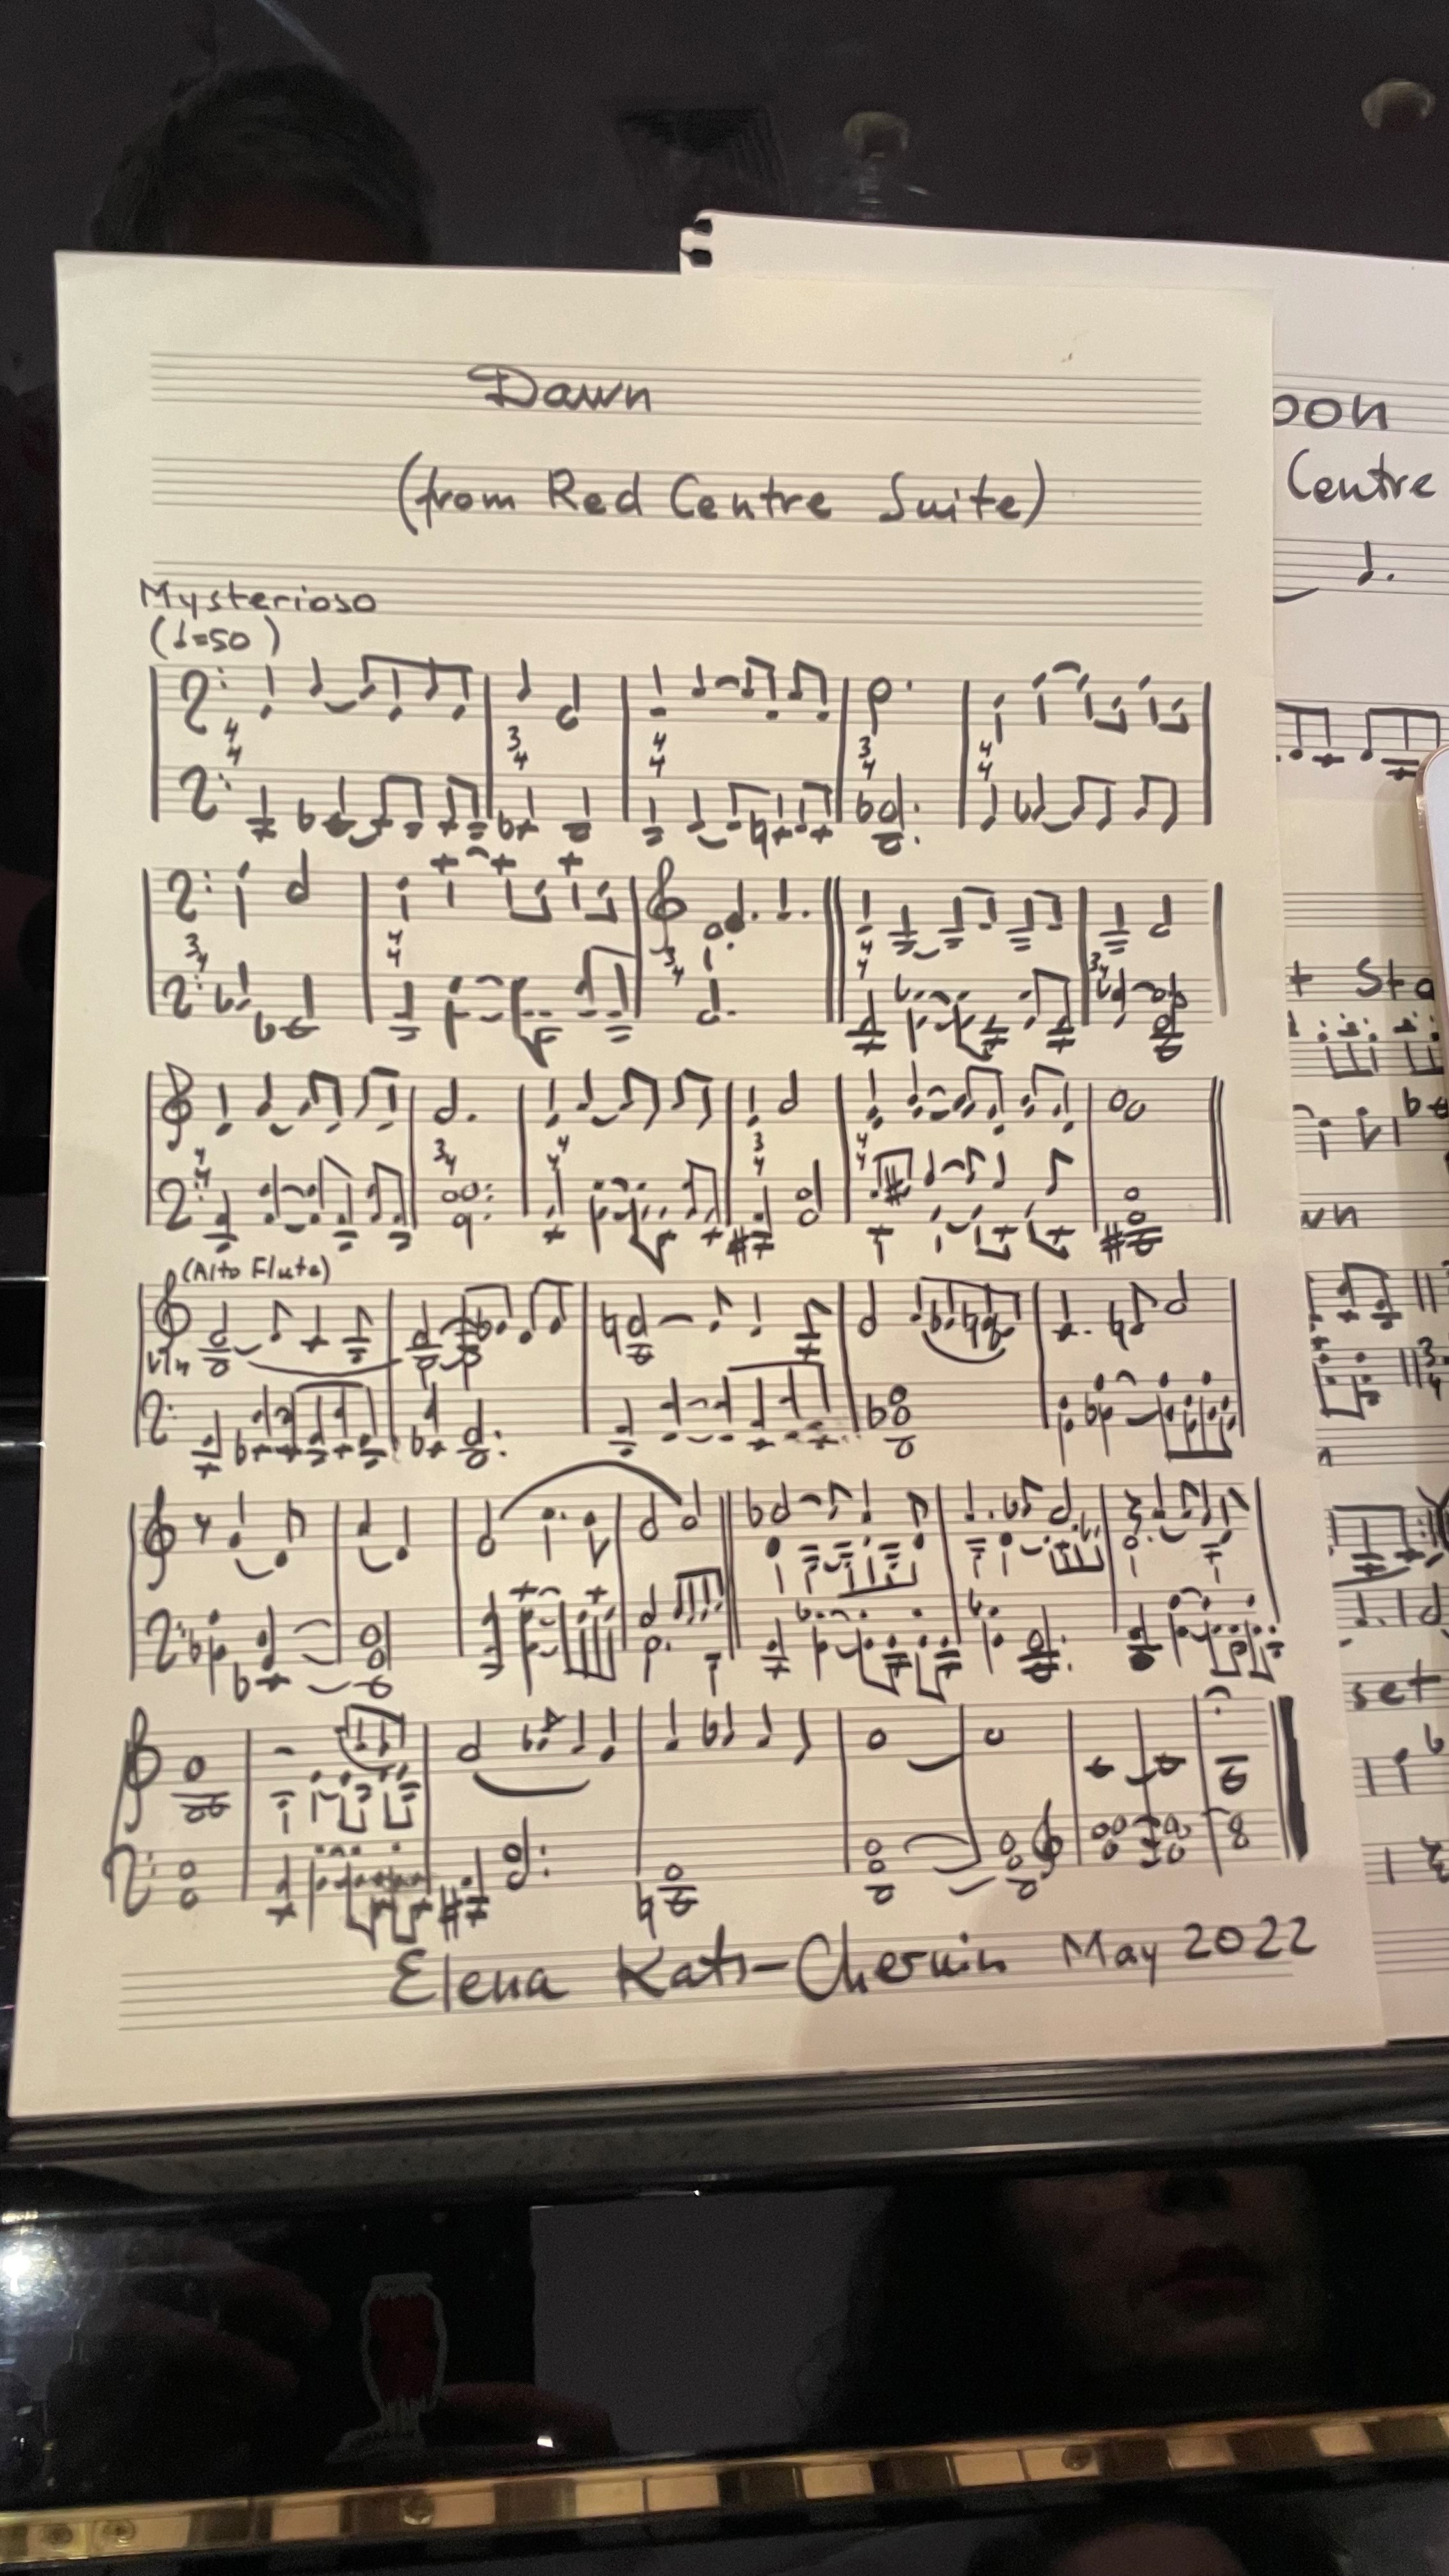 Dawn
(from Red Centre Suite)
Mysterioso
(♩=50)
4
4
3
4
4
4
3
4
4
4
3
4
4
4
3
4
4
4
3
4
4
4
3
4
4
4
3
4
4
4
(Alto Flute)
Vln
Elena Kats-Chernin May 2022
oon
Centre
set